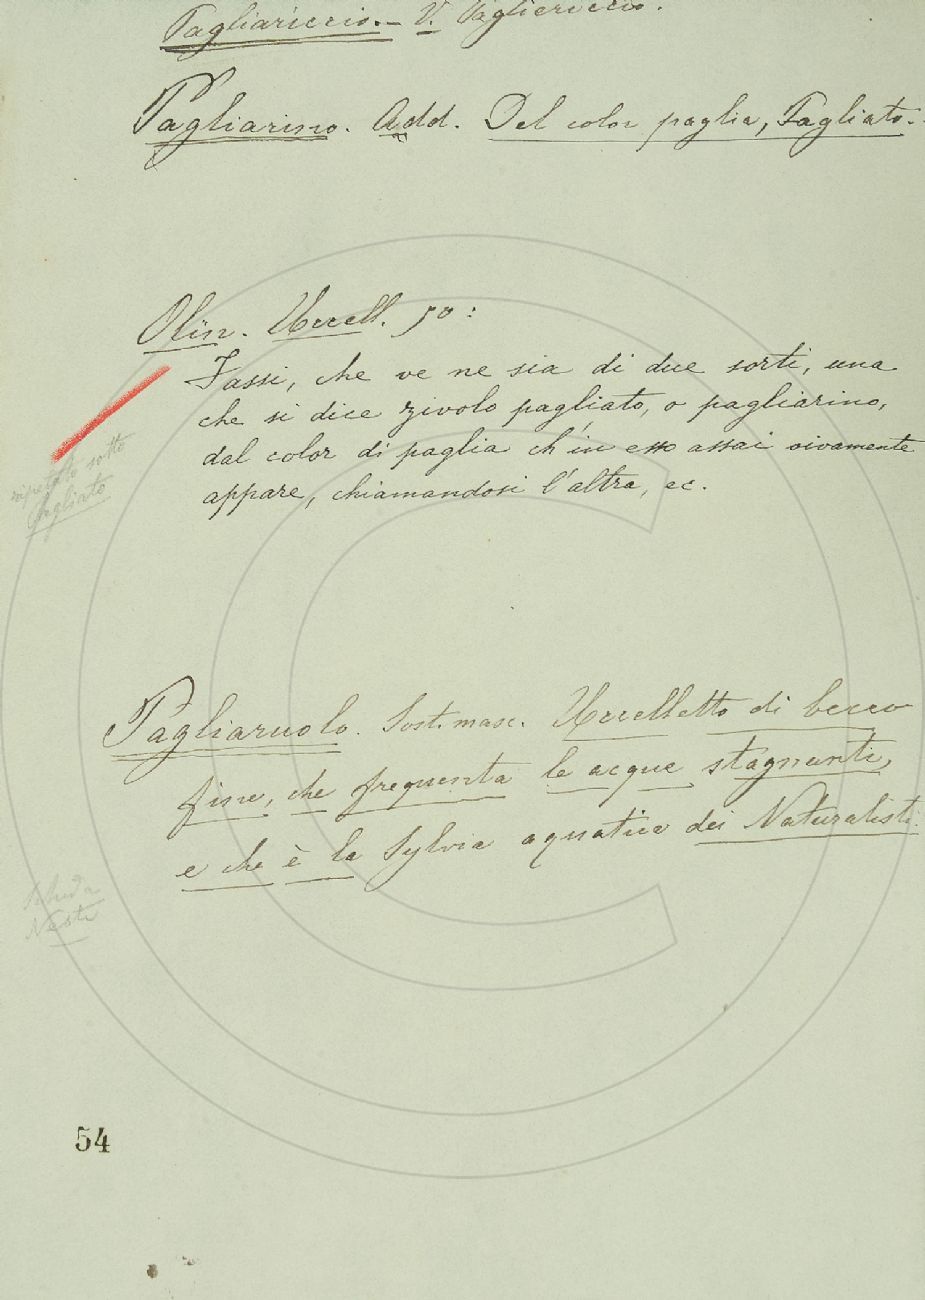 Pagliariccio. — V. Paglericcio.
Pagliarino. Add. Del color paglia, Pagliato.
Olin. Uccell. 50:
Fassi, che ve ne sia di due sorti, una
che si dice zivolo pagliato, o pagliarino,
dal color di paglia ch'in esso assai vivamente
appare, chiamandosi l'altra, ec.
ripetuto sotto
Pagliato
Pagliaruolo. Sost. masc. Uccelletto di becco
fine, che frequenta le acque stagnanti,
e che è la Sylvia aquatica dei Naturalisti.
Scheda
Nesti
54